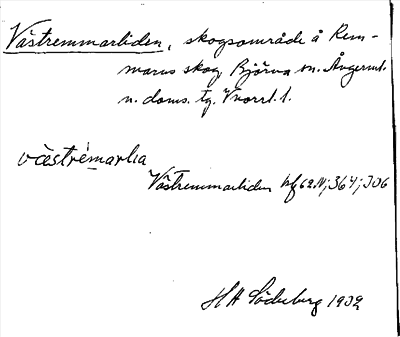 Västremmarliden, skogsområde å Rem-
marns skog, Björna sn. Ångerml.
n. doms. tg. Vnorrl. l.
västrémarlıa
Västremmarliden hfg 62.N; 364; 306
H H Söderberg 1932